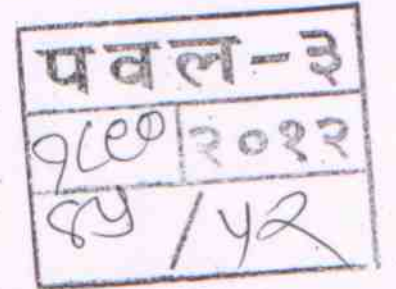 पवल-३
१८९० २०१२
४५ / ५२